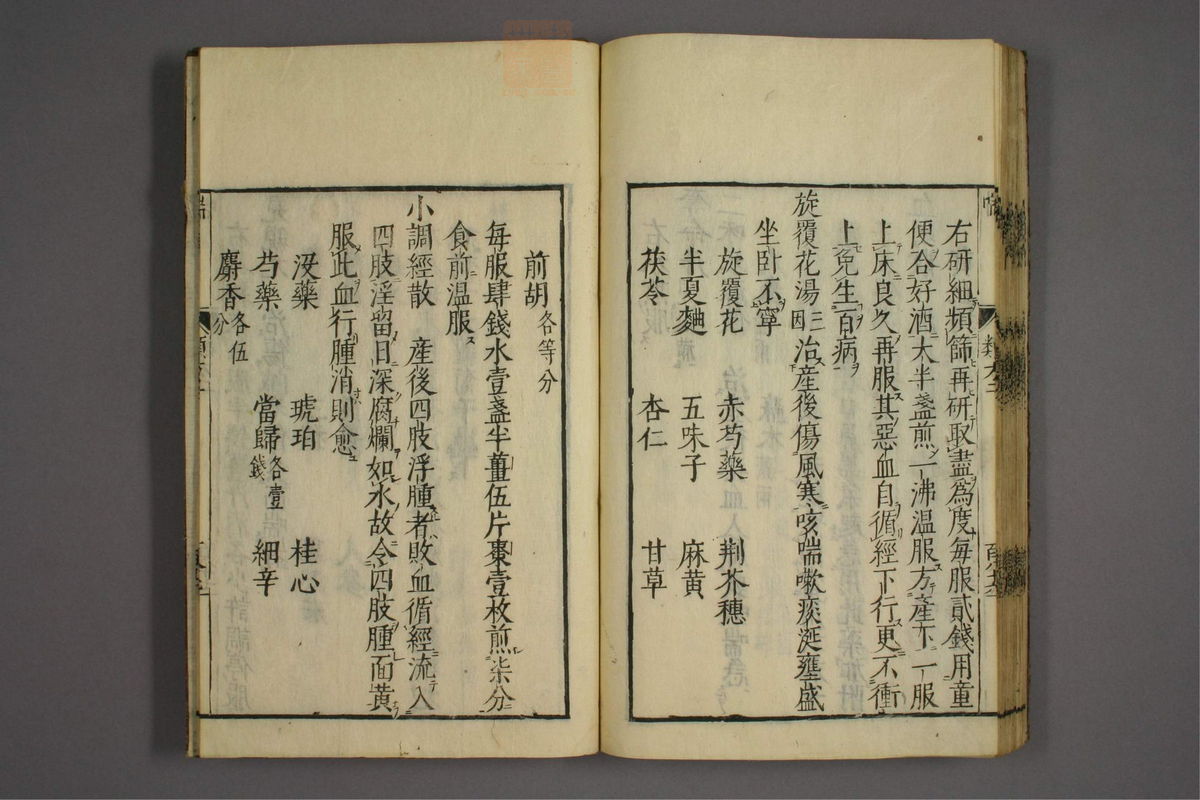 右研細頻篩再研取盡為度每服貳錢用童
便合好酒大半盞煎一沸溫服方產下一服
上床良久再服其惡血自循經下行更不衝
上免生百病
旋覆花湯三因治產後傷風寒咳喘嗽痰涎壅盛
坐卧不寧
旋覆花 赤芍藥 荆芥穗
半夏麯 五味子 麻黄
茯苓 杏仁 甘草
前胡各等分
每服肆錢水壹盞半薑伍片棗壹枚煎柒分
食前温服
小調經散 產後四肢浮腫者敗血循經流入
四肢淫留日深腐爛如水故令四肢腫面黄
服此血行腫消則愈
没藥 琥珀 桂心
芍藥 當歸各壹錢 細辛
麝香各伍分